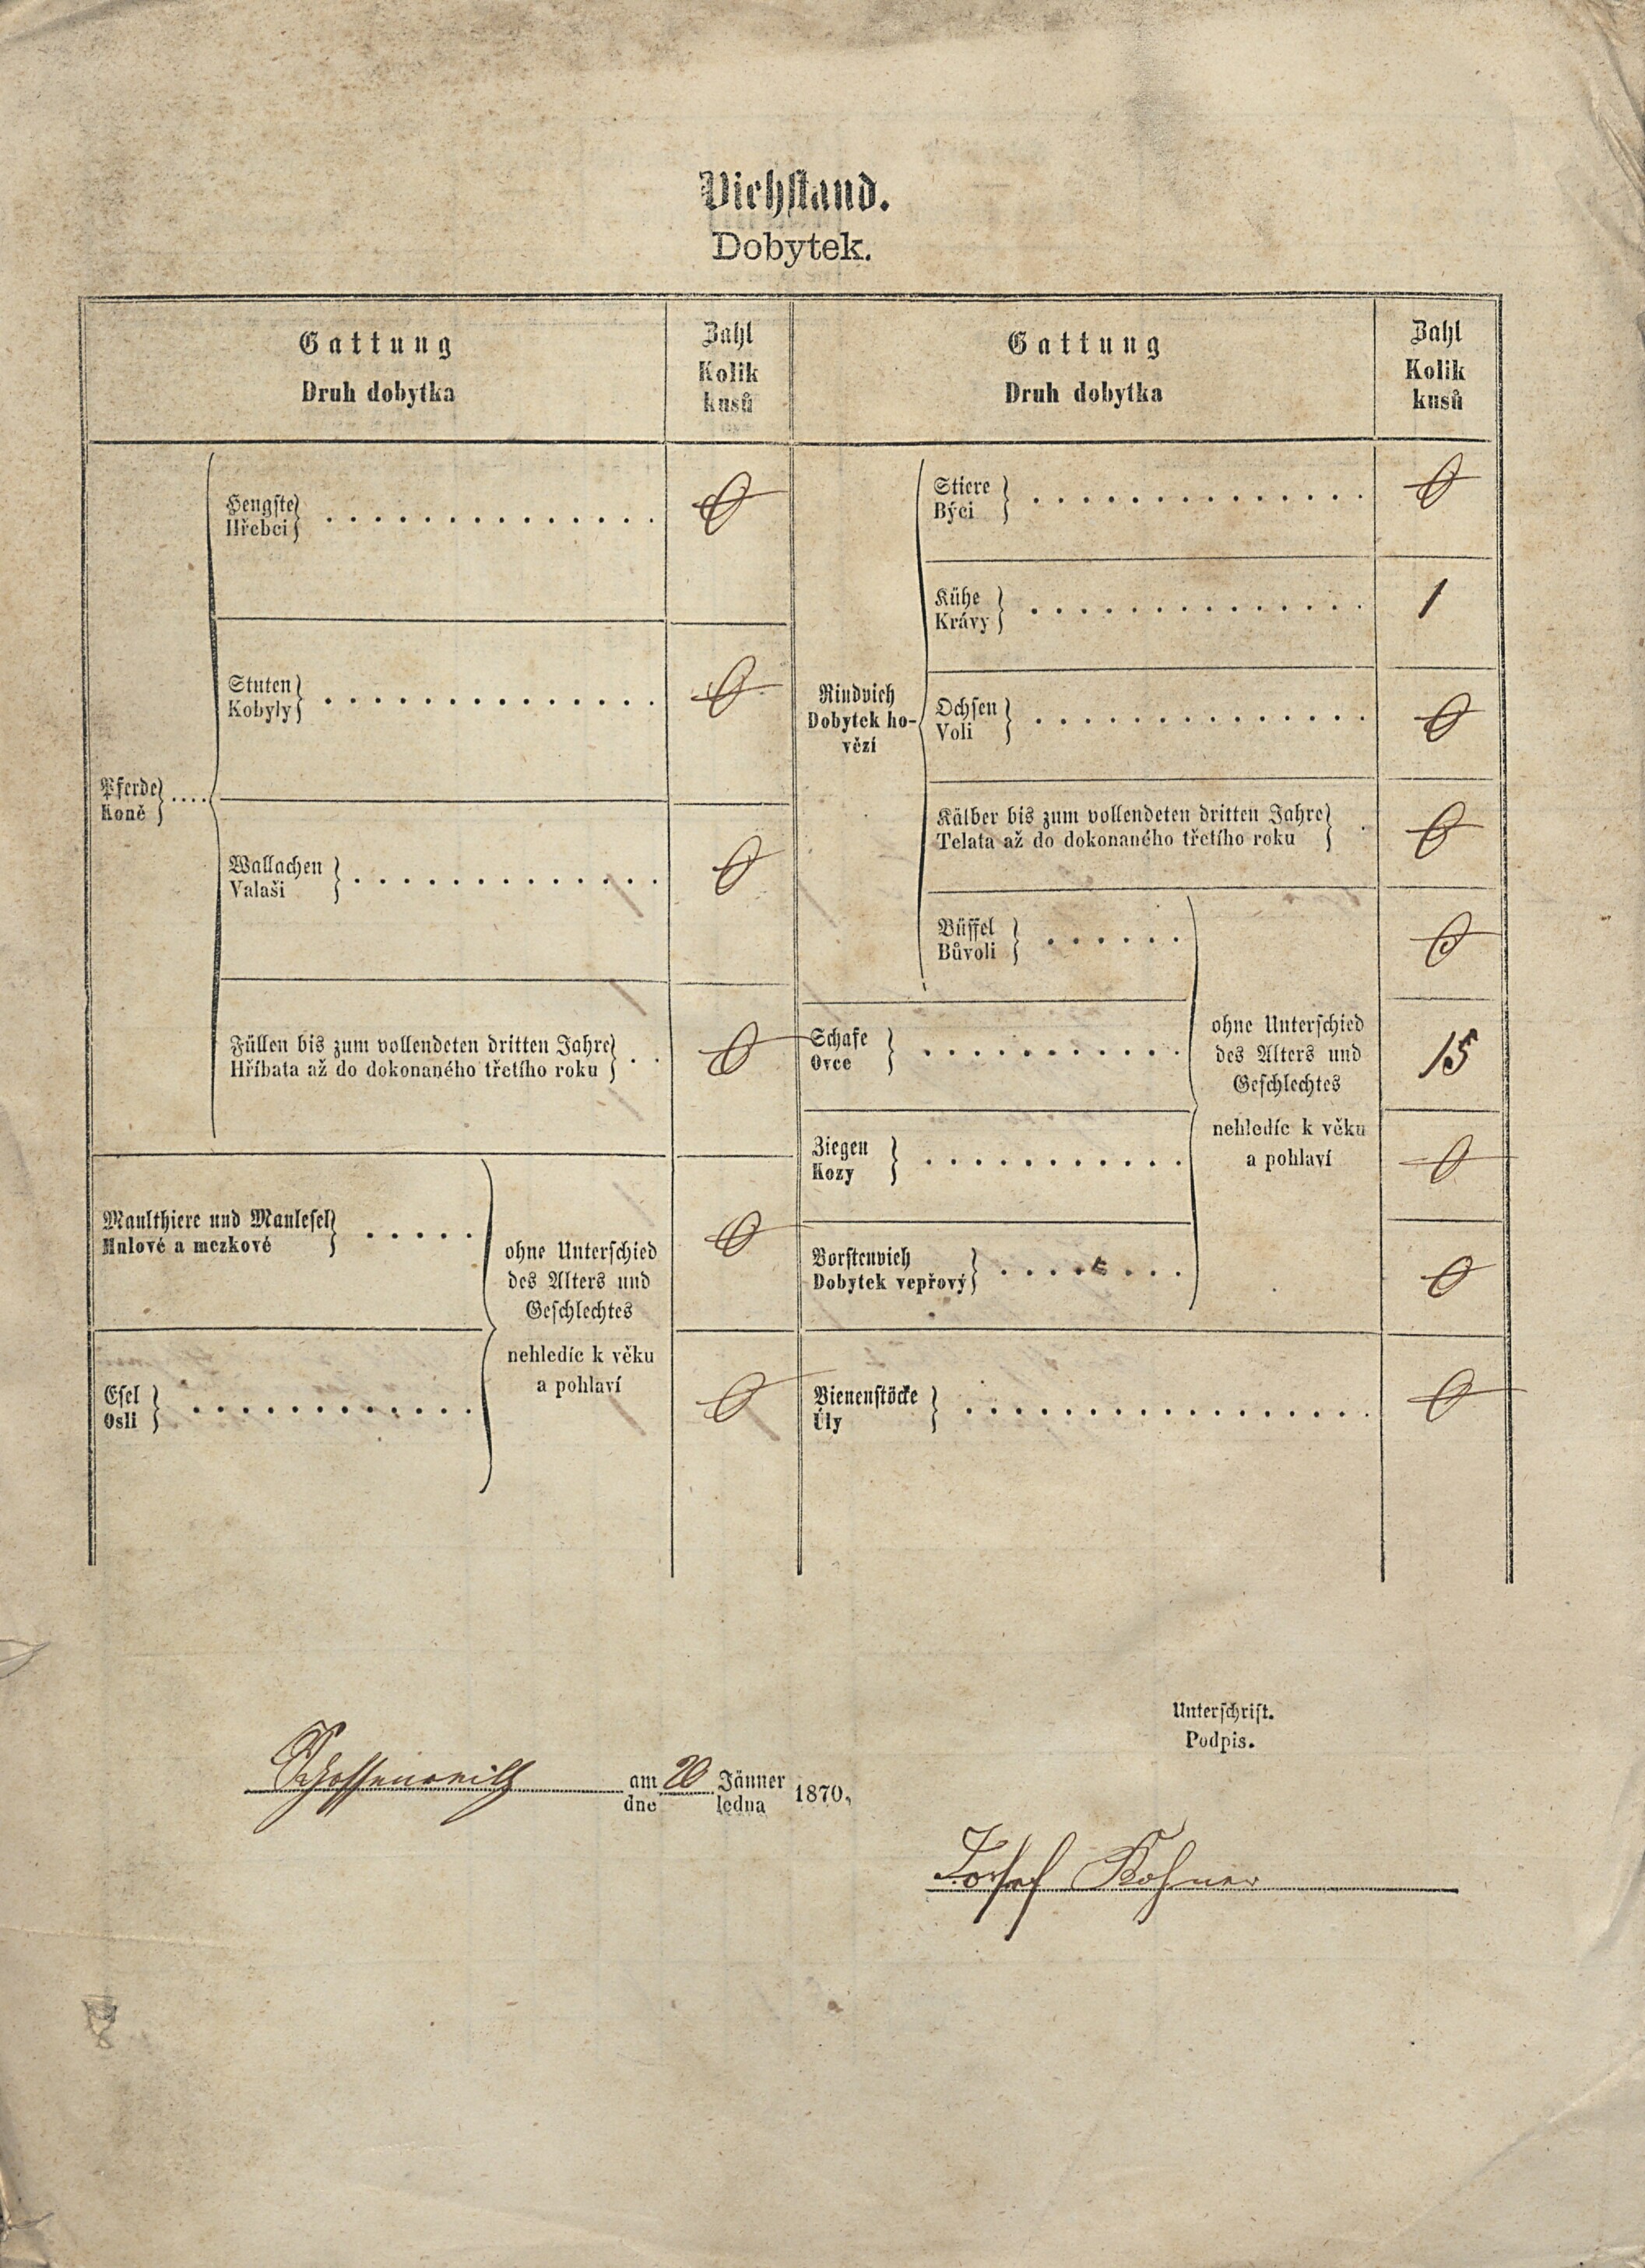 Viehstand.
Dobytek.
Gattung
Druh dobytka
Zahl
Kolik
kusů
Gattung
Druh dobytka
Zahl
Kolik
kusů
Pferde
Koně
Hengste
Hřebci
0
Stuten
Kobyly
0
Wallachen
Valaši
0
Füllen bis zum vollendeten dritten Jahre
Hříbata až do dokonaného třetího roku
0
Maulthiere und Maulesel
Mulové a mezkové
0
Esel
Osli
0
ohne Unterschied
des Alters und
Geschlechtes
nehledíc k věku
a pohlaví
Rindvieh
Dobytek ho-
vězí
Stiere
Býci
0
Kühe
Krávy
1
Ochsen
Voli
0
Kälber bis zum vollendeten dritten Jahre
Telata až do dokonaného třetího roku
0
Büffel
Bůvoli
0
Schafe
Ovce
15
Ziegen
Kozy
0
Borstenvieh
Dobytek vepřový
0
ohne Unterschied
des Alters und
Geschlechtes
nehledíc k věku
a pohlaví
Bienenstöcke
Úly
0
Unterschrift.
Podpis.
am 20 Jänner 1870,
dne ledna
Josef